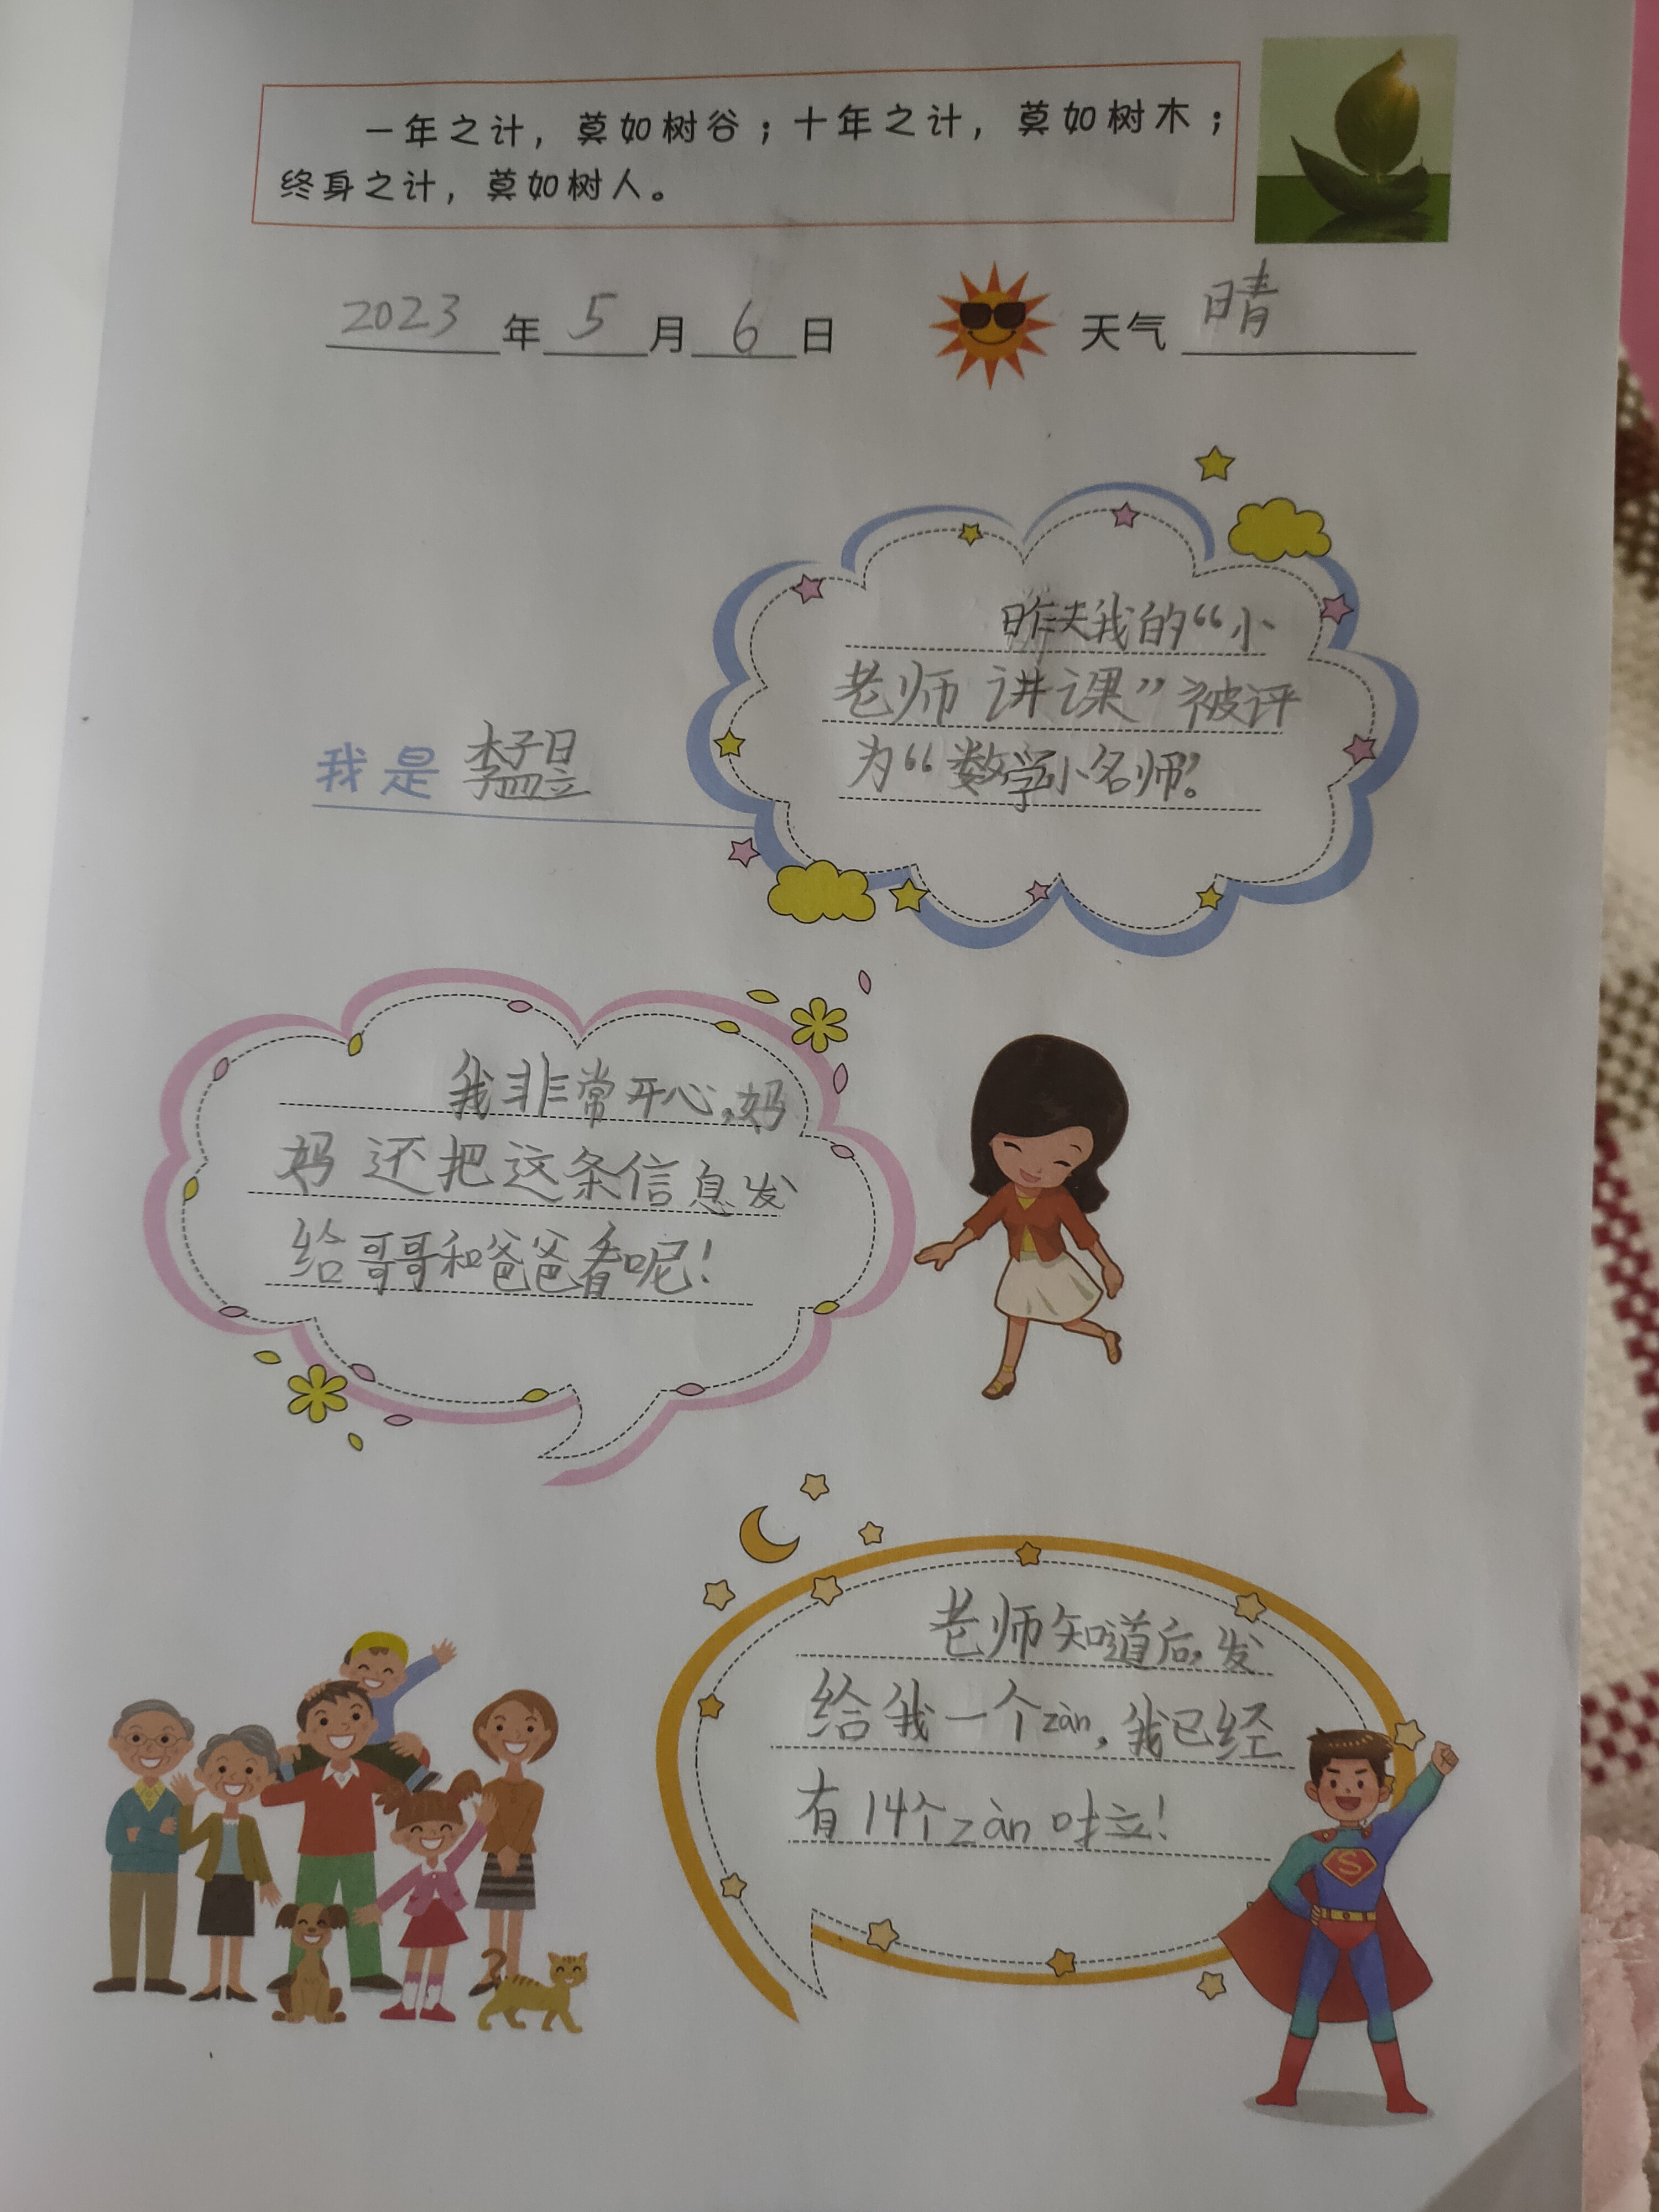 一年之计，莫如树谷；十年之计，莫如树木；
终身之计，莫如树人。
2023年5月6日 天气 晴
昨天我的“小
老师讲课”被评
为“数学小名师”。
我是 李孟昱
我非常开心，妈
妈还把这条信息发
给哥哥和爸爸看呢！
老师知道后，发
给我一个zàn，我已经
有14个zàn啦！
S